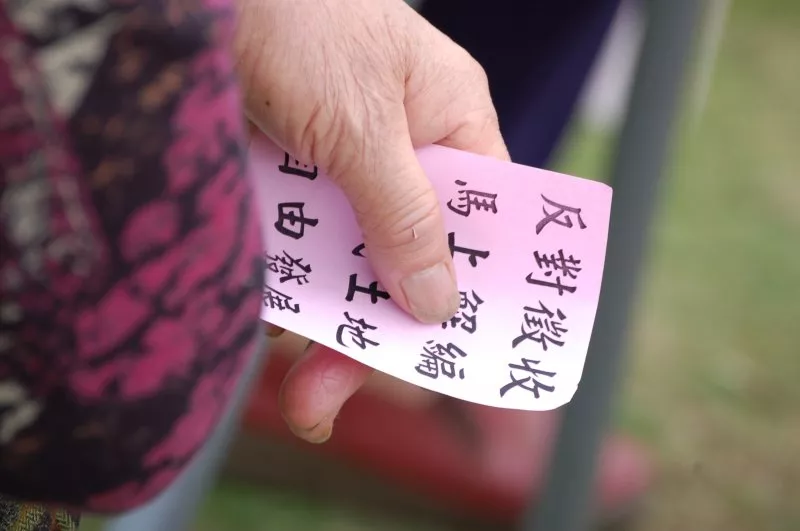 反對徵收
馬上解編
土地
自由發展